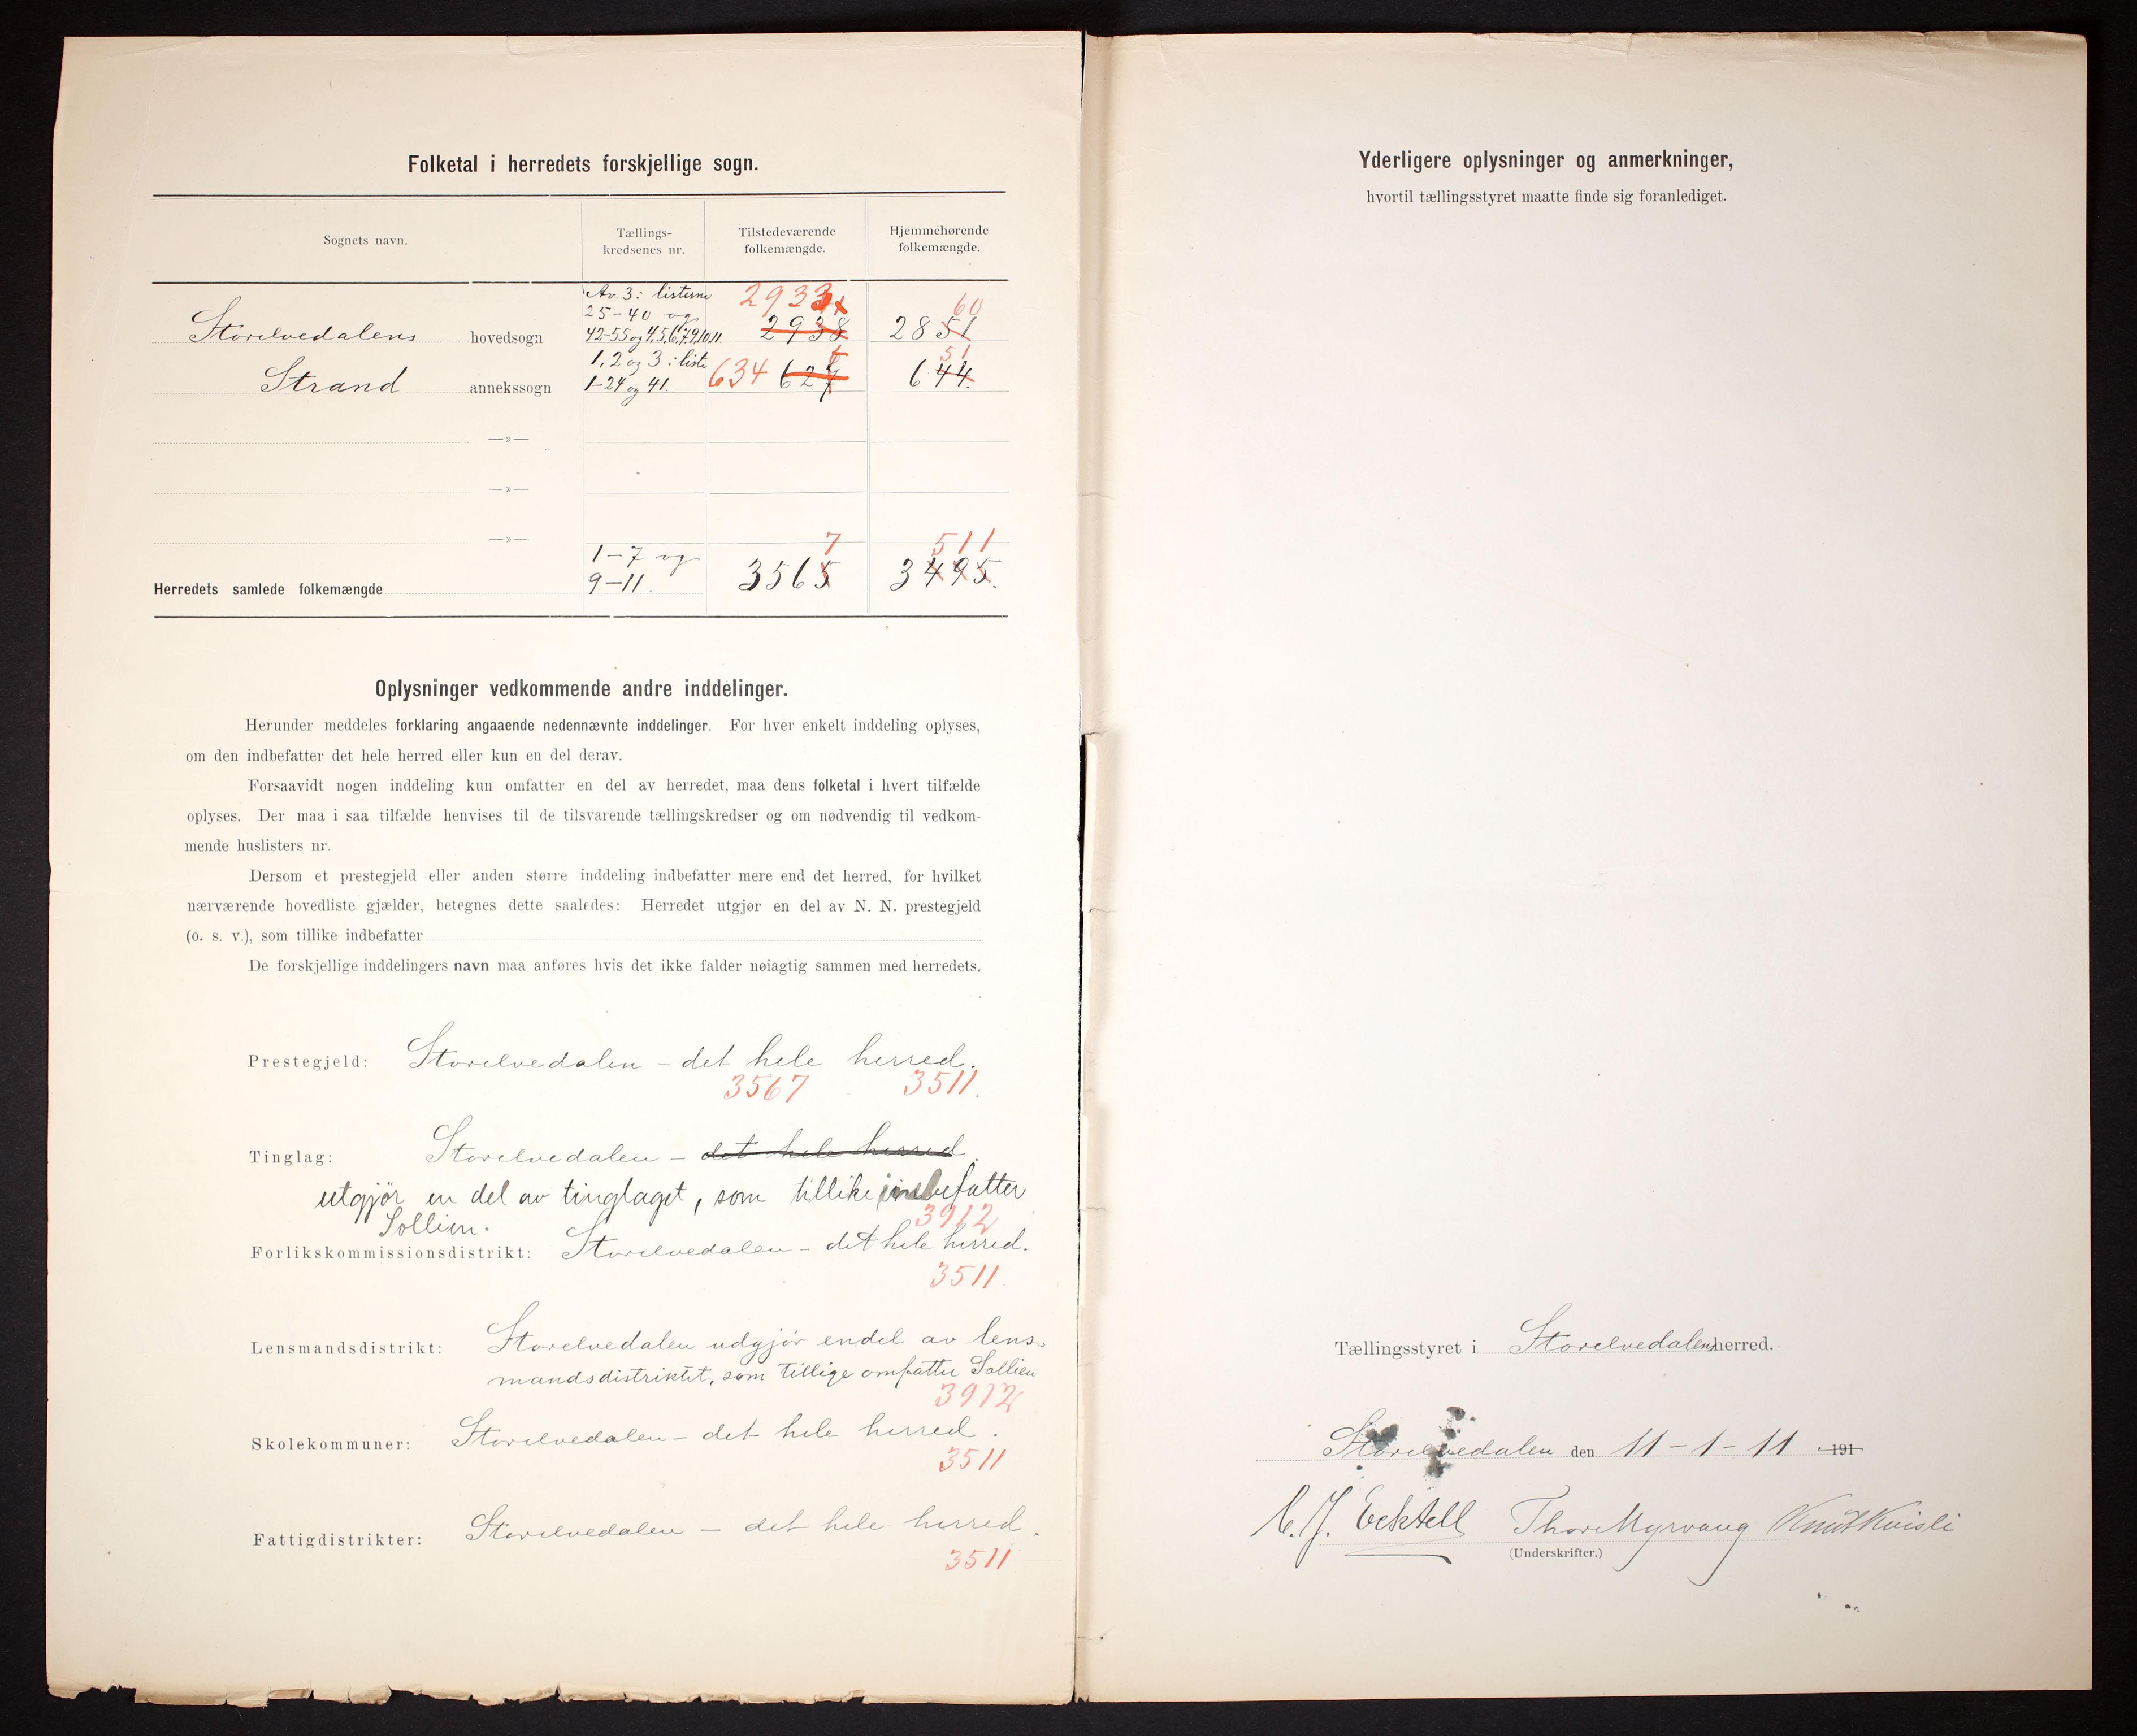 Folketal i herredets forskjellige sogn.
Sognets navn.
Tællings-
kredsenes nr.
Tilstedeværende
folkemængde.
Hjemmehørende
folkemængde.
Av. 3: listerne
25-40 og
42-55 og 4,5,6,7,9,10,11.
Storelvedalens hovedsogn
2933
2938
60
2851
1, 2 og 3: liste
1-24 og 41.
Strand annekssogn
634 627
51
644.
—»—
—»—
—»—
1-7 og
9-11.
Herredets samlede folkemængde
7
3565
511
3495.
Oplysninger vedkommende andre inddelinger.
Herunder meddeles forklaring angaaende nedennævnte inddelinger. For hver enkelt inddeling oplyses,
om den indbefatter det hele herred eller kun en del derav.
Forsaavidt nogen inddeling kun omfatter en del av herredet, maa dens folketal i hvert tilfælde
oplyses. Der maa i saa tilfælde henvises til de tilsvarende tællingskredser og om nødvendig til vedkom-
mende huslisters nr.
Dersom et prestegjeld eller anden større inddeling indbefatter mere end det herred, for hvilket
nærværende hovedliste gjælder, betegnes dette saaledes: Herredet utgjør en del av N. N. prestegjeld
(o. s. v.), som tillike indbefatter
De forskjellige inddelingers navn maa anføres hvis det ikke falder nøiagtig sammen med herredets.
Prestegjeld: Storelvedalen - det hele herred.
3567 3511.
Tinglag: Storelvedalen - det hele herred.
utgjør en del av tinglaget, som tillike indbefatter
Sollien. 3912
Forlikskommissionsdistrikt: Storelvedalen - det hele herred.
3511.
Lensmandsdistrikt: Storelvedalen udgjør endel av lens-
mandsdistriktet, som tillige omfatter Sollien
3912
Skolekommuner: Storelvedalen - det hele herred.
3511
Fattigdistrikter: Storelvedalen - det hele herred.
3511
Yderligere oplysninger og anmerkninger,
hvortil tællingsstyret maatte finde sig foranlediget.
Tællingsstyret i Storelvedalens herred.
Storelvedalen den 11-1-11 191
Thore Myrvang Knut Kvisli
(Underskrifter.)